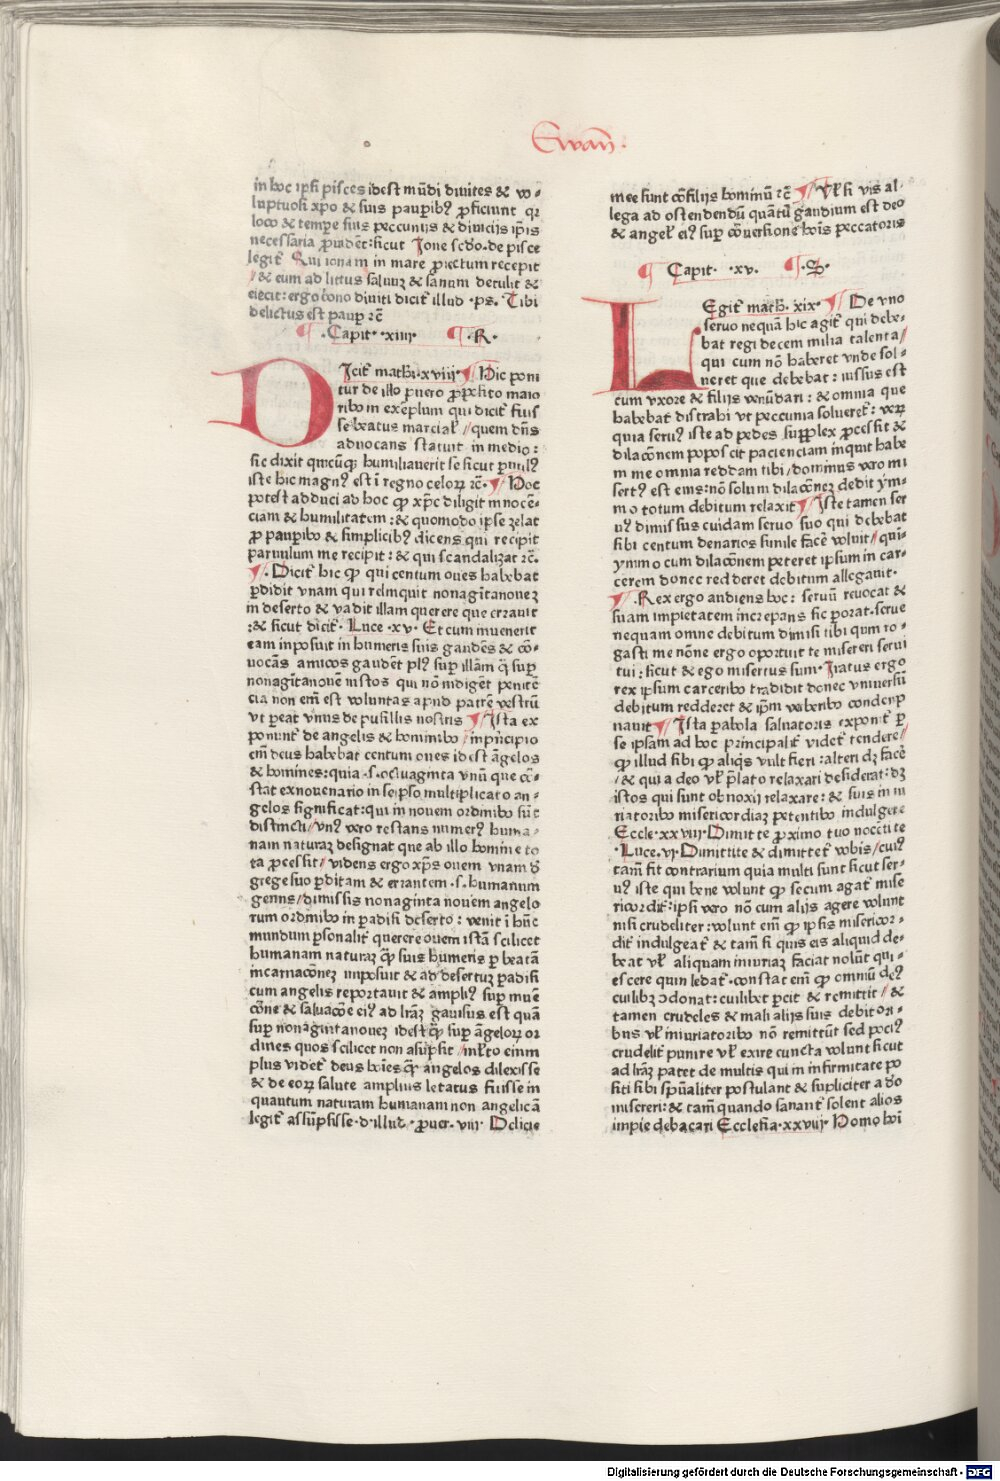 Ewan̄.
in hoc ipſi piſces idest mūdi diuites & vo-
luptuoſi xp̄o & ſuis pauꝑibꝰ ꝓficiunt qꝛ
loco & tempore ſuis peccunijs & diuicijs ip̄is
neceſſaria ꝓuidēt: ſicut Jone ſcd̄o. de piſce
legit᷑ Qui ionam in mare ꝓiectum recepit
/& eum ad littus ſaluuꝫ & ſanum detulit &
eiecit: ergo bono diuiti dicit᷑ illud .ps. Tibi
delictus est pauꝑ ⁊c̄
¶ .Capit. .xiiii. ¶ .R.
DIcit᷑ math̄i. xviii. ¶ Hic poni
tur de illo puero ꝓpoſito maio
ribo in exēplum qui dicit᷑ fuiſ
ſe beatus marcial᷑ // quem dn̄s
aduocans statuit in medio:
ſic dixit quicūqꝫ humiliauerit ſe ſicut ꝑuulꝰ
iste hic magnꝰ est ī regno celoꝝ ⁊c̄. ¶ Hoc
potest adduci ad hoc ꝙ xp̄c diligit innocē-
ciam & humilitatem: & quomodo ipſe zelat
ꝓ pauꝑibo & ſimplicibꝰ dicens qui recipit
paruulum me recipit: & qui ſcandalizat ⁊c̄.
¶ . Dicit᷑ hic ꝙ qui centum oues habebat
ꝑdidit vnam qui relinquit nonagītanoueꝫ
in deſerto & vadit illam querere que errauit
:& ſicut dicit᷑. Luce .xv. Et cum inuenerit
eam inpoſuit in humeris ſuis gaudēs & cō-
uocās amicos gaudēt plꝰ ſuꝑ illām q̄ ſuꝑ
nonagītanouē iustos qui nō indigēt penitē
cia non em̄ est voluntas apud patrē vestrū
vt ꝑeat vnus de puſillis nostris ¶ Ista ex
ponunt᷑ de angelis & hominibo / inprīcipio
em̄ deus habebat centum oues idest āgelos
& homines: quia .ſ. octuaginta vnū que cō-
stat ex nouenario in ſeipſo multiplicato an-
gelos ſignificat: qui in nouem ordinibo ſūt
distincti / vnꝰ vero restans numerꝰ huma-
nam naturaꝫ deſignat que ab illo homine to
ta ꝓceſſit / videns ergo xp̄s ouem vnam d̄
grege ſuo ꝑditam & errantem .ſ. humanum
genus / dimiſſis nonaginta nouem angelo
rum ordinibo in ꝑadiſi deſerto: venit ī hūc
mundum ꝑſonalit᷑ querere ouem istā ſcilicet
humanam naturaꝫ quā ſuis humeris ꝑ beatā
incarnacōneꝫ impoſuit & ad deſertuꝫ ꝑadiſi
cum angelis reportauit & amplꝰ ſuꝑ inuē
cōne & ſaluacōe eiꝰ ad lr̄aꝫ gauiſus est quā
ſuꝑ nonagintanoueꝫ idest quā ſuꝑ āgeloꝝ or
dines quos ſcilicet non aſūpſit / ml᷑to enim
plus videt᷑ deus hoīes quā angelos dilexiſſe
& de eoꝝ ſalute amplius letatus fuiſſe in
quantum naturam humanam non angelicā
legit᷑ aſſūpſiſſe .d. illud. ꝓuer. viii. Delicie
mee ſunt cū filijs hominū ⁊c̄ ¶ Vl᷑ ſi vis al-
lega ad ostendendū quātū gaudium est deo
& angel᷑ eiꝰ ſuꝑ cōuerſione hoīs peccatoris
¶ Capit. .xv. ¶ .S.
LEgit᷑ math̄. xix. ¶ De vno
ſeruo nequā hic agit᷑ qui debe-
bat regi decem milia talenta /
qui cum nō haberet vnde ſol-
ueret que debebat: iuſſus est
cum vxore & filijs venūdari: & omnia que
habebat distrahi vt peccunia ſolueret᷑: veꝝ
quia ſeruꝰ iste ad pedes ſupplex ꝓceſſit &
dilacōnem popoſcit pacienciam inquit habe
in me omnia reddam tibi / dominus vero mi
ſertꝰ est eius: nō ſolum dilacōneꝫ dedit ym-
mo totum debitum relaxit ¶ Iste tamen ſer
uꝰ dimiſſus cuidam ſeruo ſuo qui debebat
ſibi centum denarios ſimile facē voluit / qui-
ymmo cum dilacōnem peteret ipſum in car-
cerem donec redderet debitum allegauit.
¶ . Rex ergo audiens hoc: ſeruū reuocat &
ſuam impietatem increpans ſic ꝑorat. ſerue
nequam omne debitum dimiſi tibi qum ro-
gasti me nōne ergo oportuit te miſereri ſerui
tui: ſicut & ego miſertus ſum. Iratus ergo
rex ipſum carceribo tradidit donec vniuerſū
debitum redderet & ip̄m verberibo condēp
nauit ¶ Ista ꝑabola ſaluatoris exponit᷑ ꝑ
ſe ipſam ad hoc principalit᷑ videt᷑ tendere /
ꝙ illud ſibi ꝙ aliqꝫs vult fieri: alteri dꝫ facē
/& qui a deo vl᷑ p̄lato relaxari deſiderat: dꝫ
istos qui ſunt obnoxij relaxare: & ſuis iniu
riatoribo miſericordiaꝫ petentibo indulgere
Eccle. xxviii. Dimitte ꝓximo tuo nocēti te
.Luce. vi. Dimittite & dimittet᷑ vobis / cuiꝰ
tam̄ fit contrarium quia multi ſunt ſicut ſer-
uꝰ iste qui bene volunt ꝙ ſecum agat᷑ miſe
ricordit᷑: ipſi vero nō cum alijs agere volunt
niſi crudeliter: volunt em̄ ꝙ ipſis miſericor-
dit᷑ indulgeat᷑ & tam̄ ſi quis eis aliquid de-
beat vl᷑ aliquam iniuriaꝫ faciat nolūt qui-
eſcere quin ledat᷑. constat em̄ ꝙ omniū deꝰ
cuilibꝫ ↄdonat: cuilibet ꝑcit & remittit // &
tamen crudeles & mali alijs ſuis debitori-
bus vl᷑ iniuriatoribo nō remittūt ſed pociꝰ
crudelit᷑ punire vl᷑ exire cuncta volunt ſicut
ad lr̄aꝫ patet de multis qui in infirmitate po
ſiti ſibi ſpūaliter postulant & ſupliciter a d̄o
miſereri: & tam̄ quando ſanant᷑ ſolent alios
impie debacari Eccleſia. xxvuij. Homo hoī
Digitalisierung gefördert durch die Deutsche Forschungsgemeinschaft - DFG